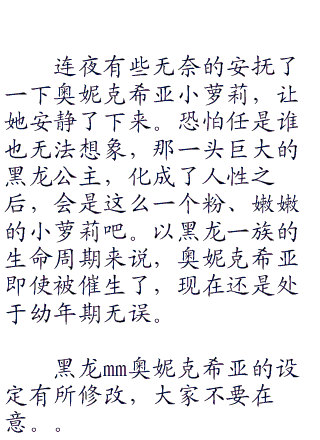 连夜有些无奈的安抚了
一下奥妮克希亚小萝莉，让
她安静了下来。恐怕任是谁
也无法想象，那一头巨大的
黑龙公主，化成了人性之
后，会是这么一个粉、嫩嫩
的小萝莉吧。以黑龙一族的
生命周期来说，奥妮克希亚
即使被催生了，现在还是处
于幼年期无误。
黑龙mm奥妮克希亚的设
定有所修改，大家不要在
意。。